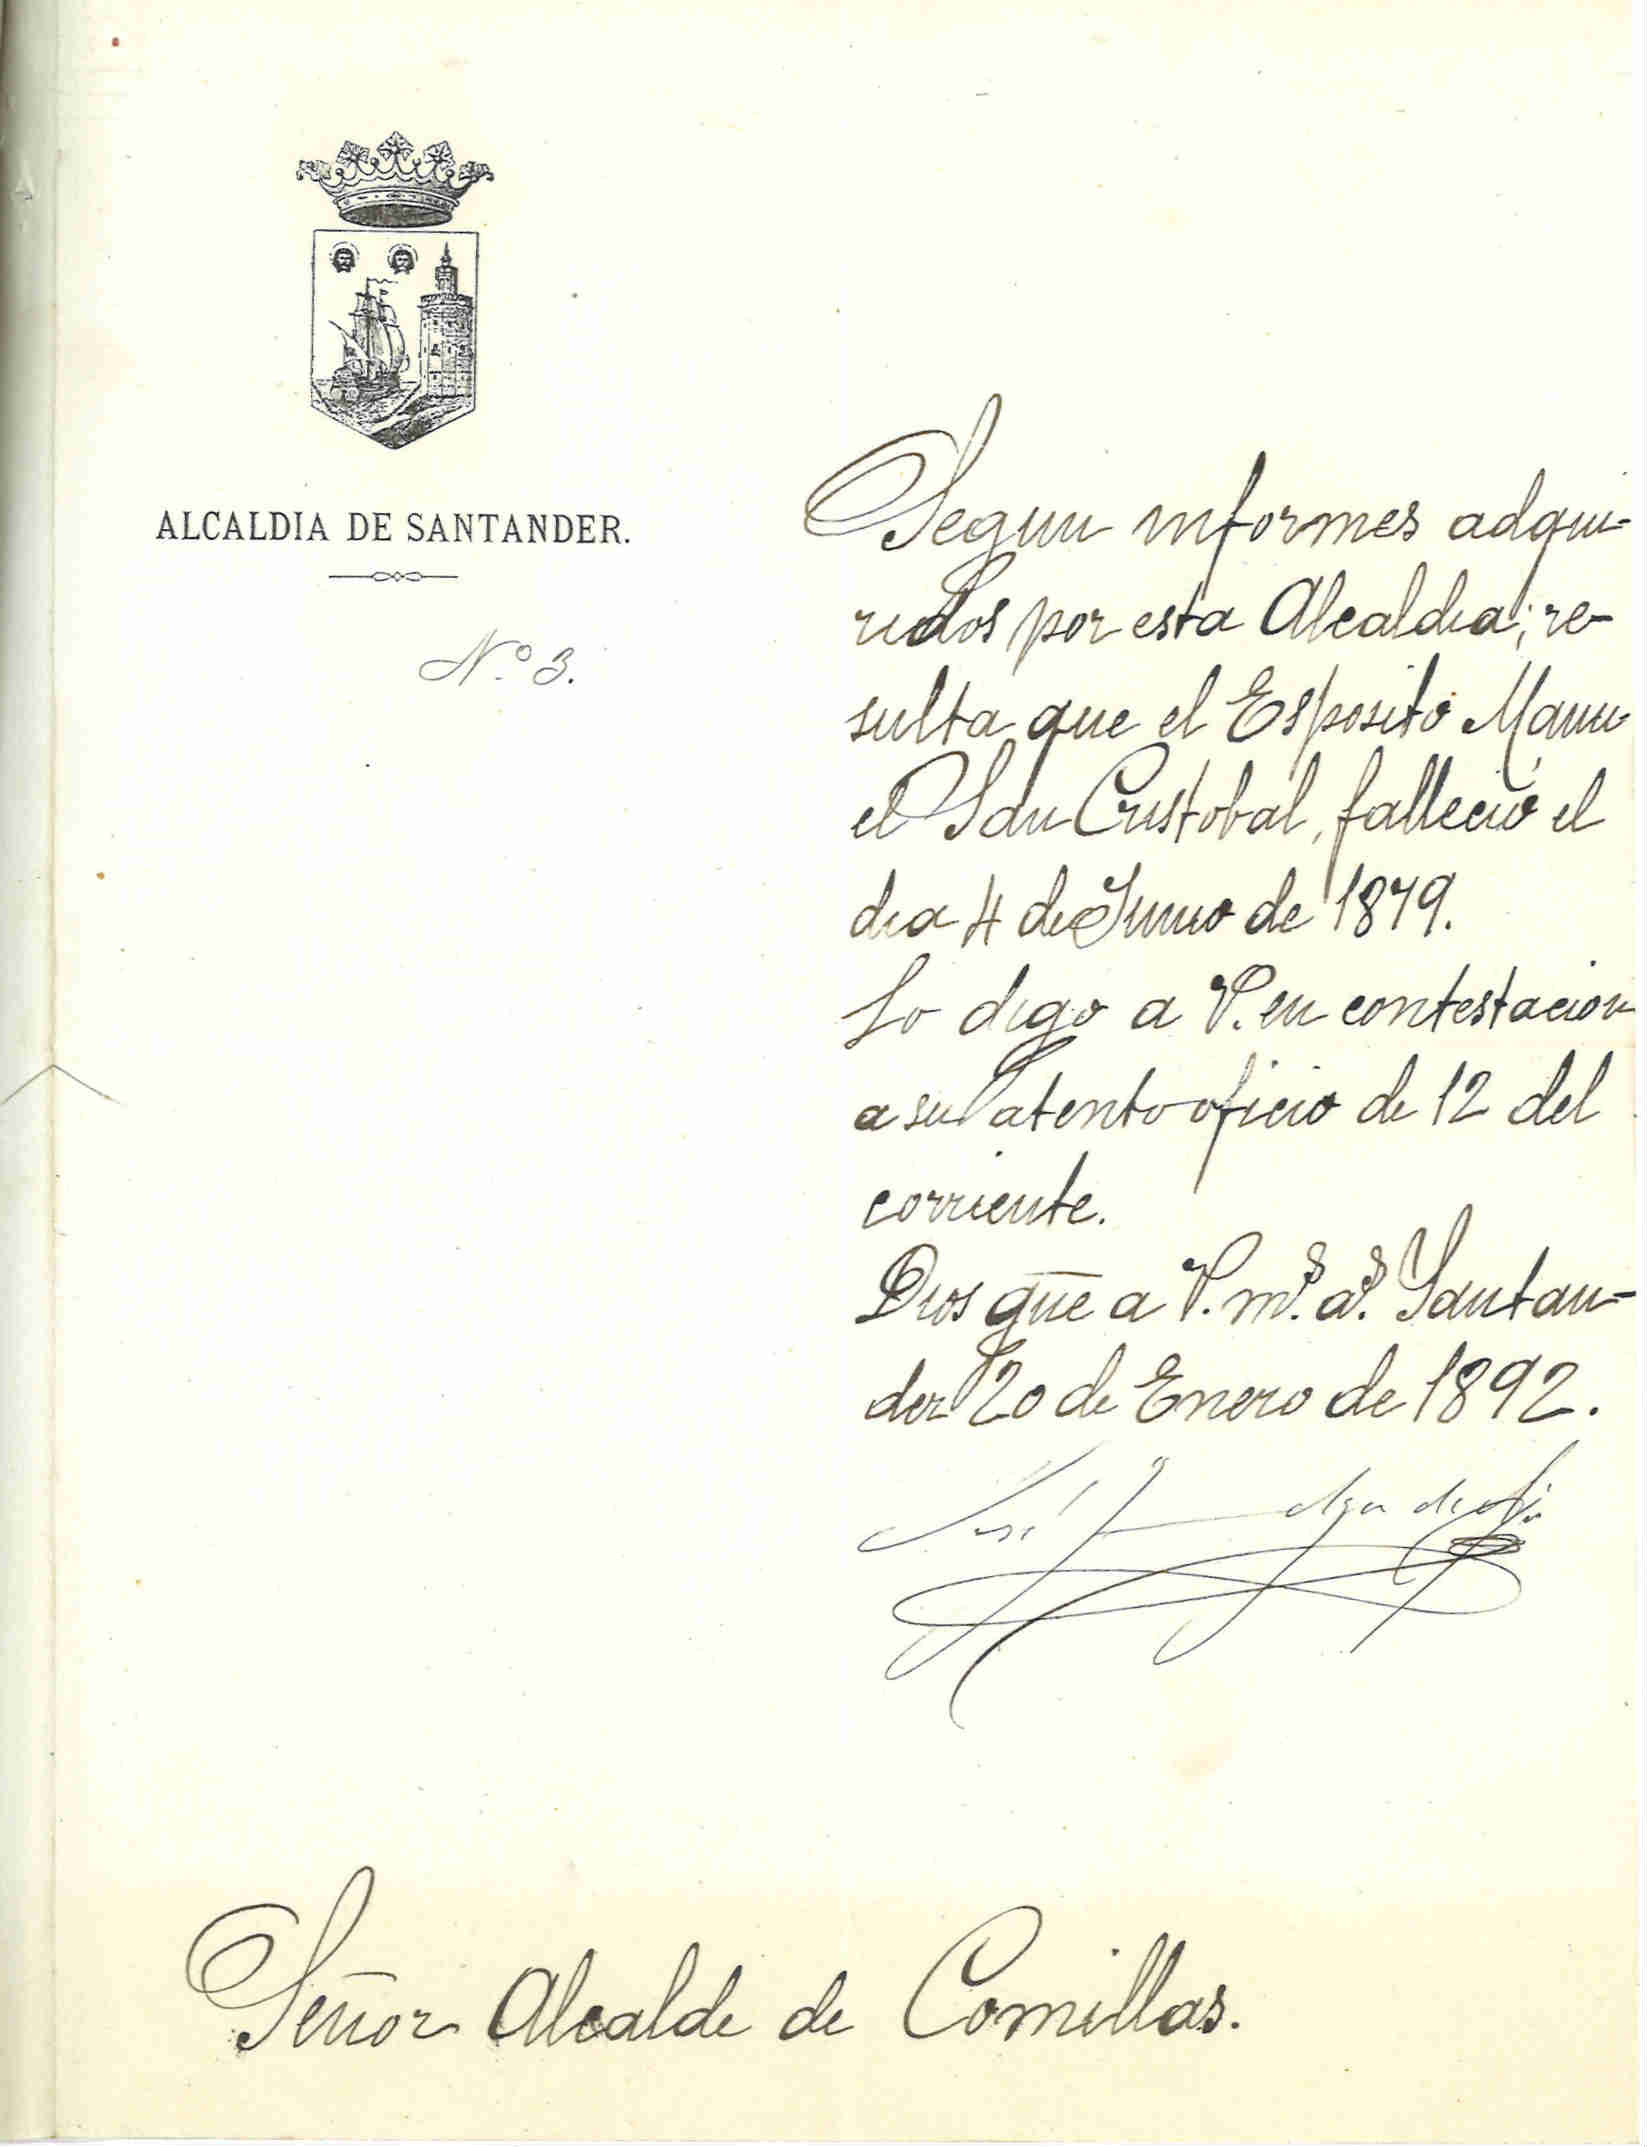 ALCALDIA DE SANTANDER.
Nº 3.
Segun informes adqui-
ridos por esta Alcaldia; re-
sulta que el Esposito Manu
el San Cristobal, falleció el
dia 4 de Junio de 1879.
Lo digo a V. en contestacion
a su atento oficio de 12 del
corriente.
Dios gue a V. ms. as. Santan-
der 20 de Enero de 1892.
José
Señor Alcalde de Comillas.